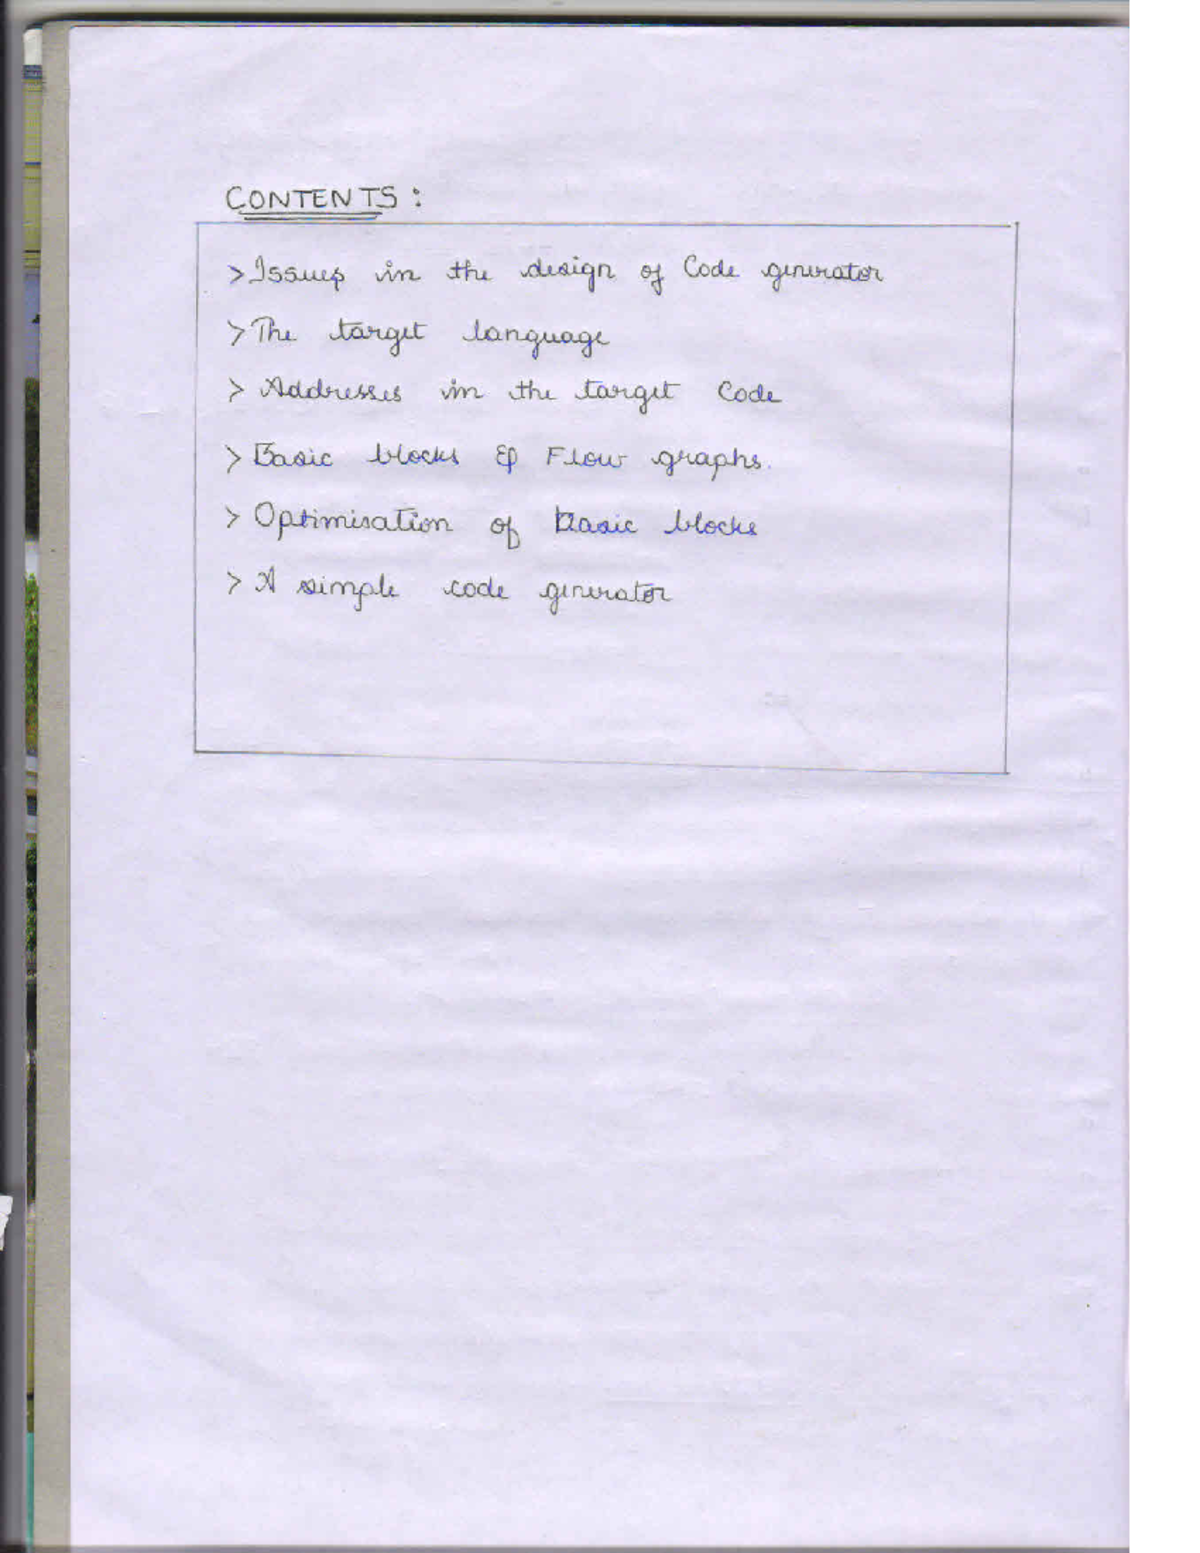 CONTENTS :
> Issues in the design of Code generator
> The target language
> Addresses in the target Code
> Basic blocks & Flow graphs.
> Optimisation of basic blocks
> A simple code generator